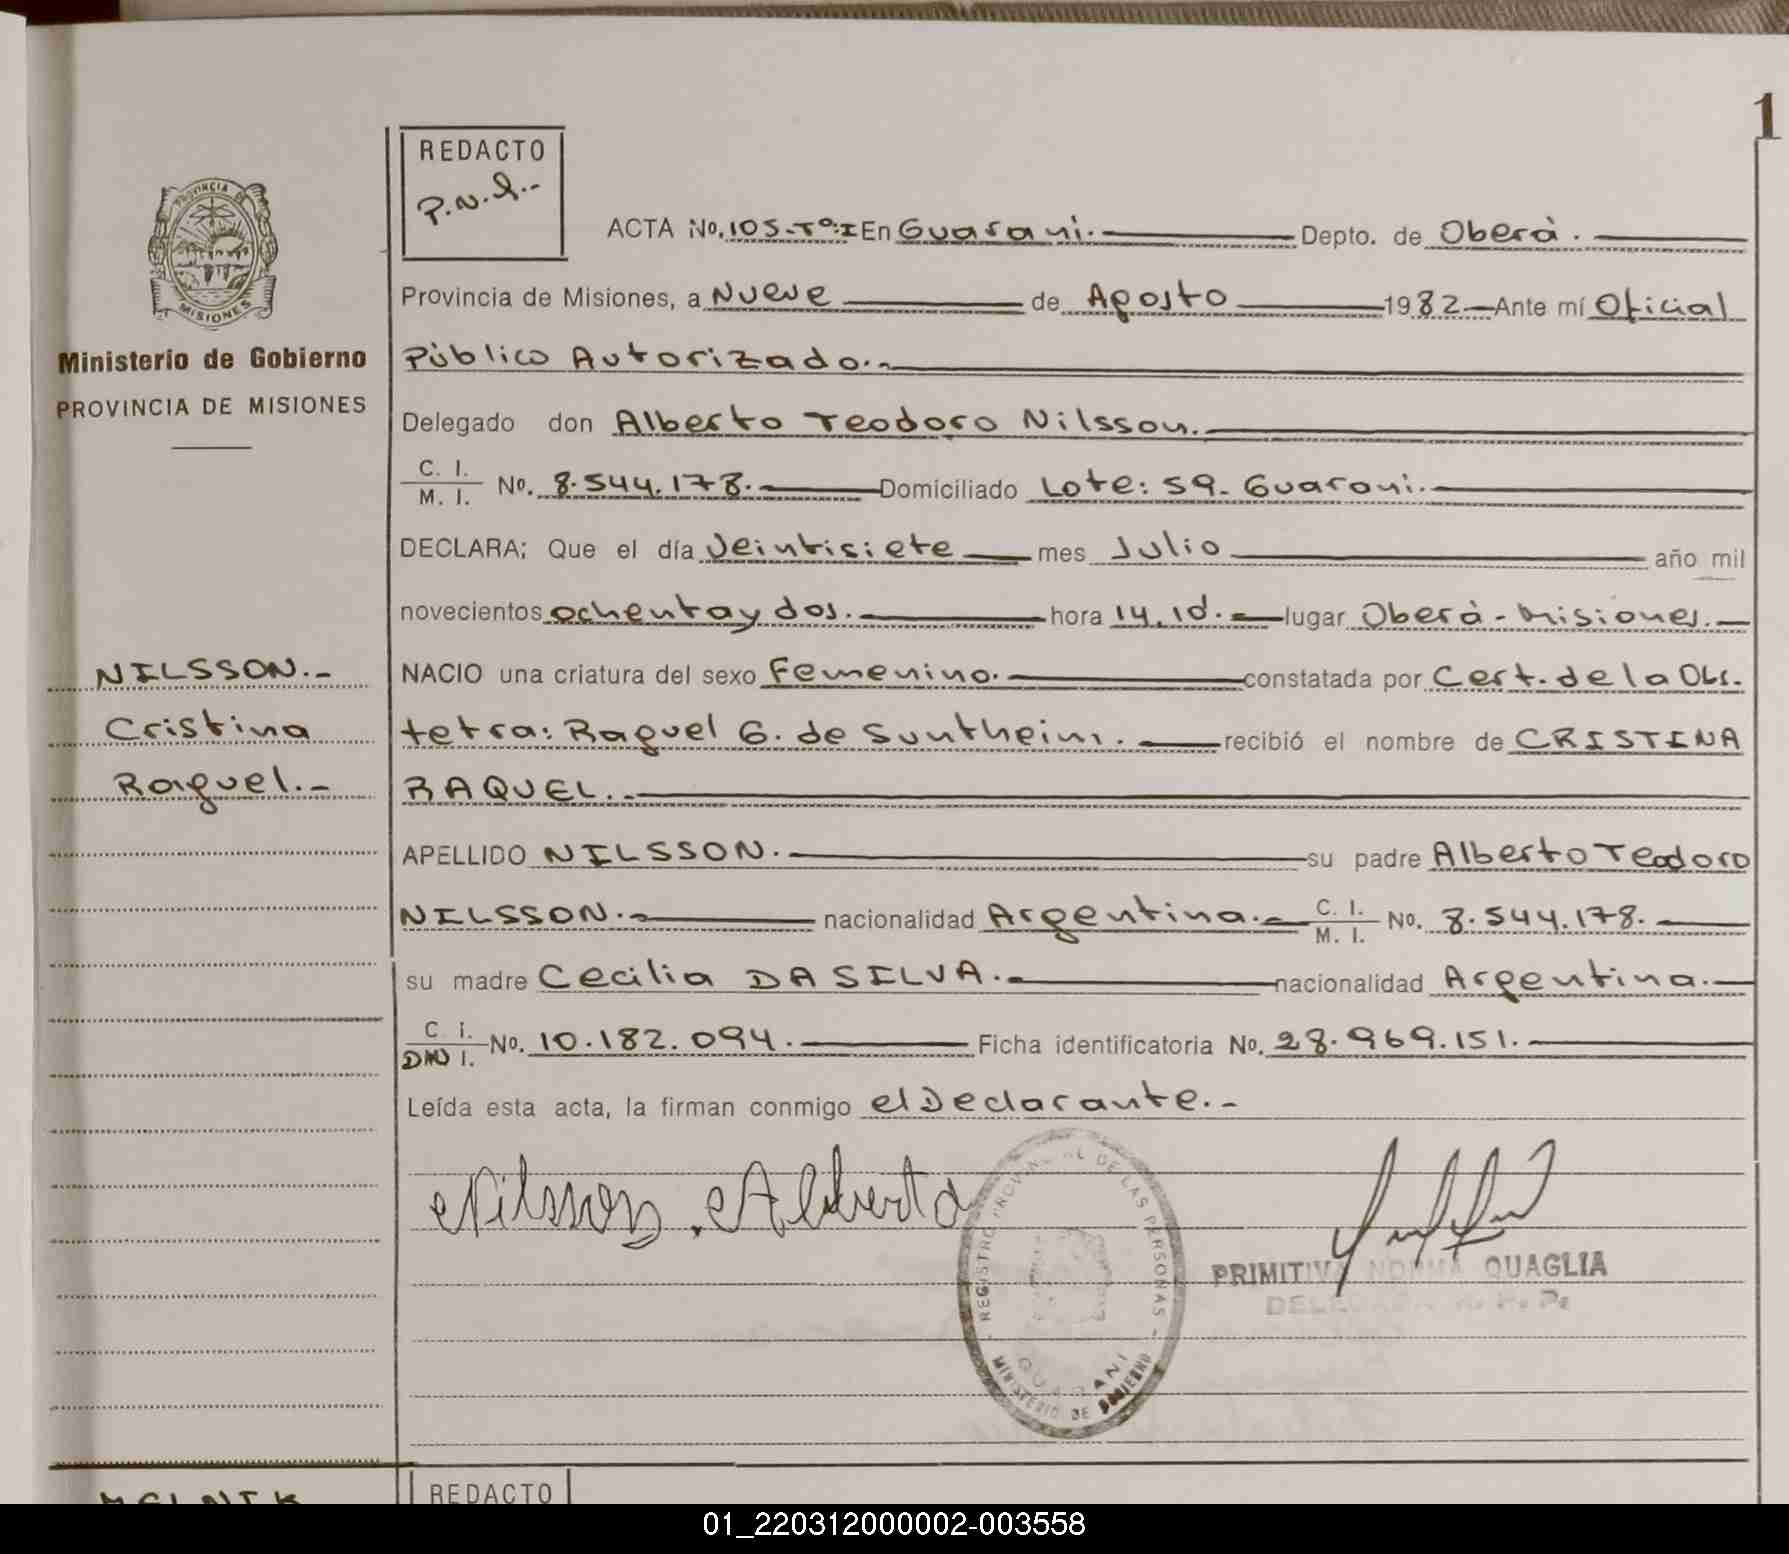 1
REDACTO
P.N.Q.-
PROVINCIA DE
MISIONES
Ministerio de Gobierno
PROVINCIA DE MISIONES
ACTA No. 105-Tº:I En Guarani. Depto. de Oberà.
Provincia de Misiones, a Nueve de Agosto 1982 Ante mí Oficial
Pùblico Autorizado.-
Delegado don Alberto Teodoro Nilsson.
C. I.
M. I. No. 8.544.178. Domiciliado Lote: 59- Guarani.
DECLARA; Que el día Veintisiete mes Julio año mil
novecientos ochenta y dos. hora 14,10. lugar Oberà - Misiones.
NACIO una criatura del sexo Femenino. constatada por Cert. de la Obs.
tetra: Raquel G. de Suntheim. recibió el nombre de CRISTINA
RAQUEL.
APELLIDO NILSSON. su padre Alberto Teodoro
NILSSON. nacionalidad Argentina. C. I.
M. I. No. 8.544.178.
su madre Cecilia DA SILVA. nacionalidad Argentina.
C. I.
DNI I. No. 10.182.094. Ficha identificatoria No. 28.969.151.
Leída esta acta, la firman conmigo el Declarante.-
NILSSON.-
Cristina
Raquel.-
Nilsson Alberto
REGISTRO PROVINCIAL DE LAS PERSONAS
GUARANI
MINISTERIO DE GOBIERNO
PRIMITIVA NORMA QUAGLIA
MELNIK
REDACTO
01_220312000002-003558